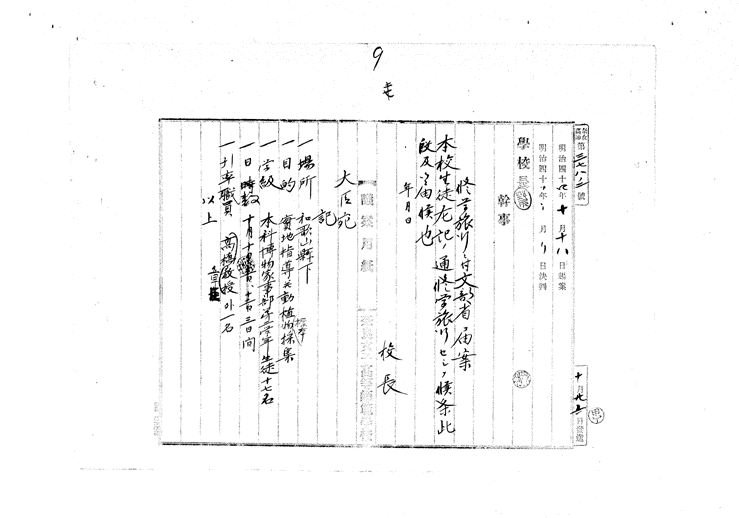 9
第三七八二號
明治四十四年十月十八日起案
明治四十 年 月 日決判
學校長
幹事
修学旅行ニ付文部省届案
本校生徒左記ノ通修学旅行セシメ候条此
段及御届候也
年月日
校長
大臣宛
記
一場所 和歌山縣下
一目的 實地指導並動植物標本採集
一学級 本科博物家事部第三学年生徒十七名
一日数 三日間
一引率職員 高橋教授外一名
以上
起案用紙
高等師範學校
十月 日發送